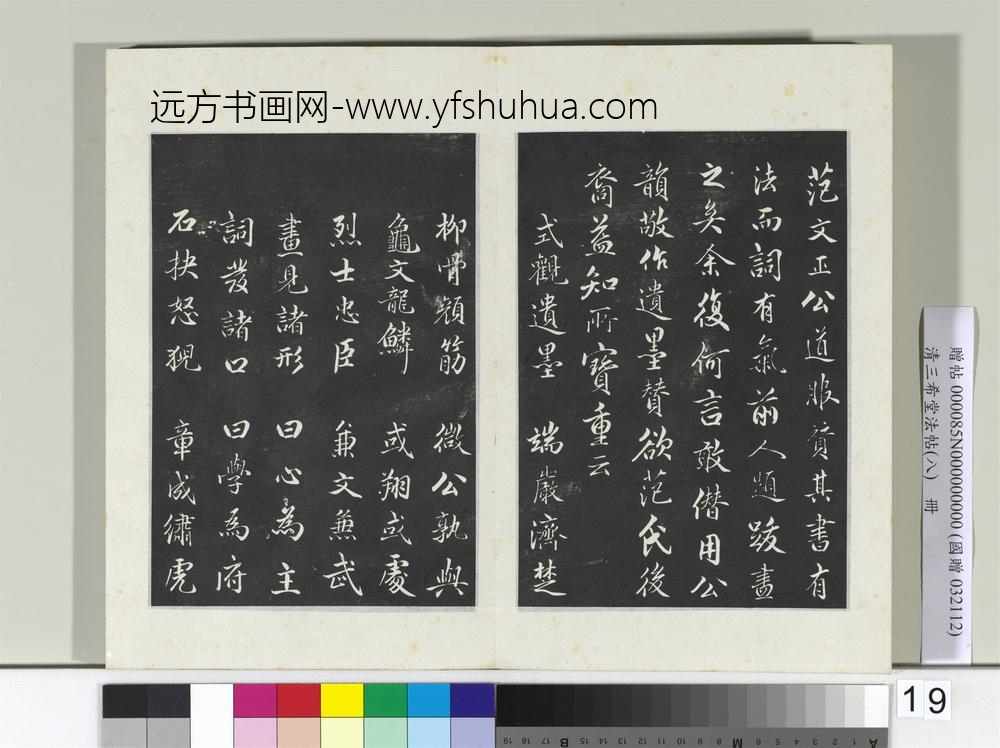 远方书画网-www.yfshuhua.com
范文正公道服賛其書有
法而詞有氣前人題跋盡
之矣余復何言敢僣用公
韻敬作遺墨賛欲范氏後
裔益知所寶重云
式觀遺墨 端嚴濟楚
柳骨顔筋 微公孰與
龜文龍鱗 或翔或處
烈士忠臣 兼文兼武
畫見諸形 曰心為主
詞發諸口 曰學為府
石抉怒猊 章成繡虎
贈帖 000085N000000000 (國贈 032112)
清三希堂法帖(八) 冊
19